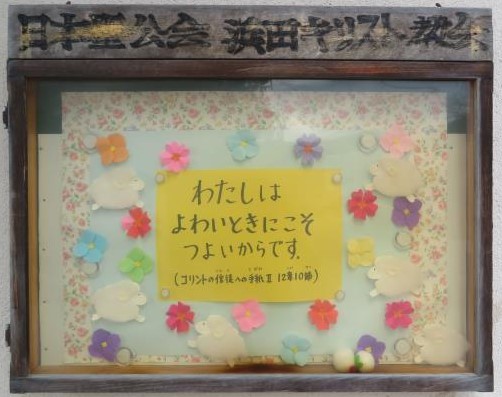 日本聖公会 浜田キリスト教会
わたしは
よわいときにこそ
つよいからです。
(コリントの信徒への手紙Ⅱ 12章10節)